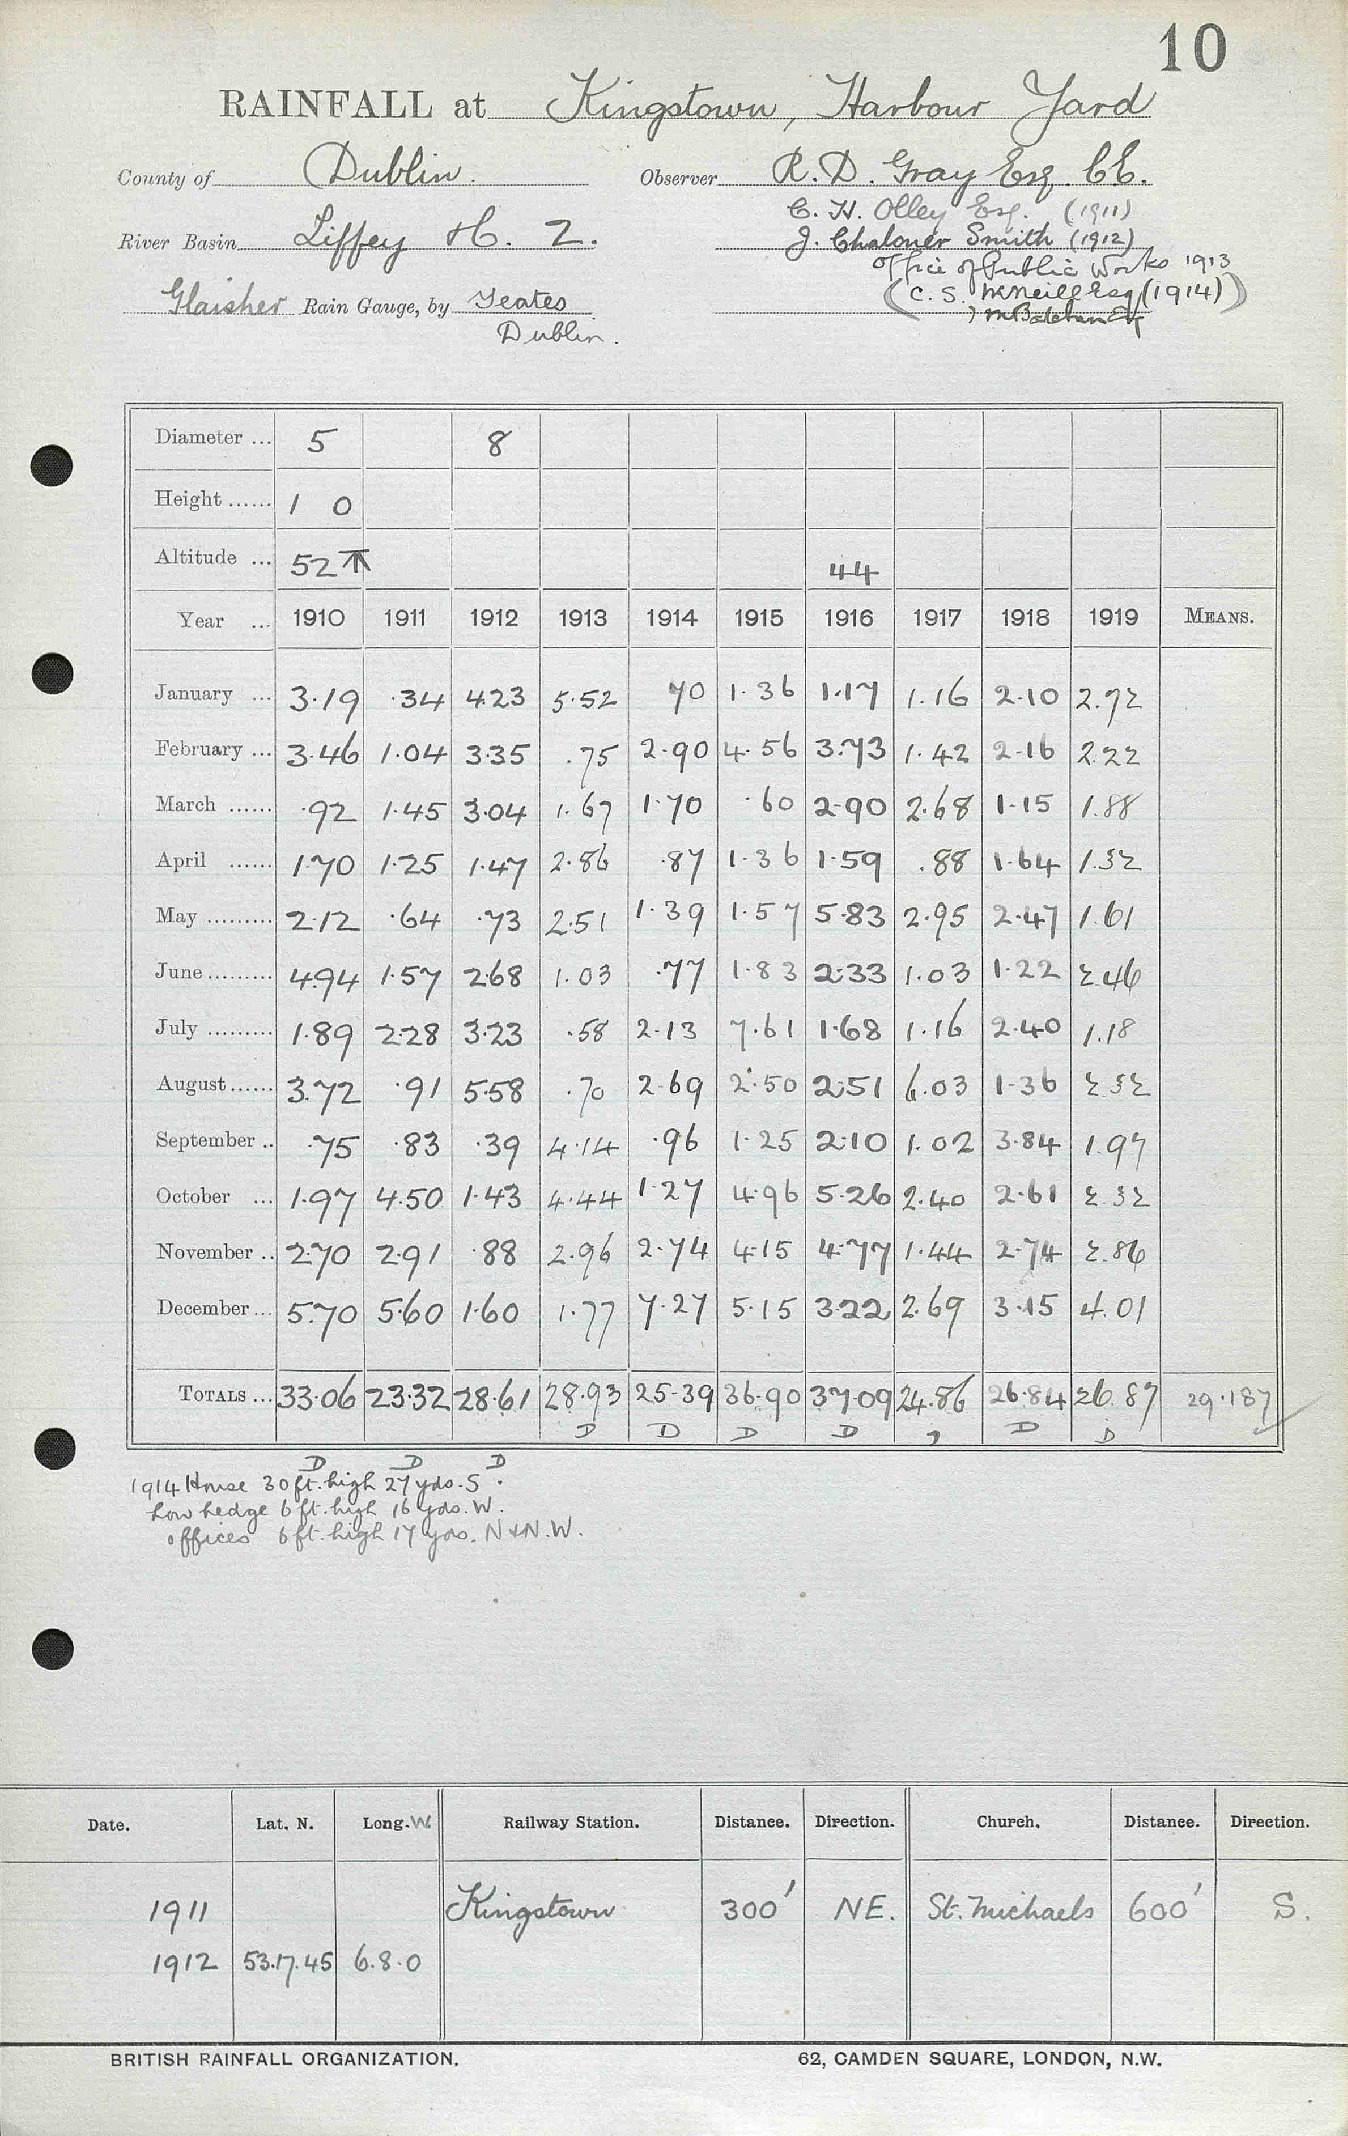 10
RAINFALL at Kingstown, Harbour Yard
County of Dublin. Observer R. D. Gray Esq. C.E.
C. H. Olley Esq. (1911)
River Basin Liffey H. 2. J. Chaloner Smith (1912)
Office of Public Works 1913
Glaisher Rain Gauge, by Yeates (C. S. McNeill Esq (1914))
Dublin.
Diameter ... 5 8
Height ...... 1 0
Altitude ... 52 44
Year ... 1910 1911 1912 1913 1914 1915 1916 1917 1918 1919 MEANS.
January ... 3.19 .34 4.23 5.52 70 1.36 1.17 1.16 2.10 2.72
February ... 3.46 1.04 3.35 .75 2.90 4.56 3.73 1.42 2.16 2.22
March ...... .92 1.45 3.04 1.67 1.70 .60 2.90 2.68 1.15 1.88
April ...... 1.70 1.25 1.47 2.86 .87 1.36 1.59 .88 1.64 1.32
May ......... 2.12 .64 .73 2.51 1.39 1.57 5.83 2.95 2.47 1.61
June ......... 4.94 1.57 2.68 1.03 .77 1.83 2.33 1.03 1.22 2.46
July ......... 1.89 2.28 3.23 .58 2.13 7.61 1.68 1.16 2.40 1.18
August ...... 3.72 .91 5.58 .70 2.69 2.50 2.51 6.03 1.36 2.32
September .. .75 .83 .39 4.14 .96 1.25 2.10 1.02 3.84 1.97
October ... 1.97 4.50 1.43 4.44 1.27 4.96 5.26 2.40 2.61 2.32
November .. 2.70 2.91 .88 2.96 2.74 4.15 4.77 1.44 2.74 2.86
December ... 5.70 5.60 1.60 1.77 7.27 5.15 3.22 2.69 3.15 4.01
TOTALS ... 33.06 23.32 28.61 28.93 25.39 36.90 37.09 24.86 26.84 26.87 29.187
D D D D D D
D D D
1914 House 30 ft. high 27 yds. S.
Low hedge 6 ft. high 16 yds. W.
offices 6 ft. high 17 yds. N & N.W.
Date. Lat. N. Long. W. Railway Station. Distance. Direction. Church. Distance. Direction.
1911 Kingstown 300' NE. St. Michaels 600' S.
1912 53.17.45 6.8.0
BRITISH RAINFALL ORGANIZATION. 62, CAMDEN SQUARE, LONDON, N.W.